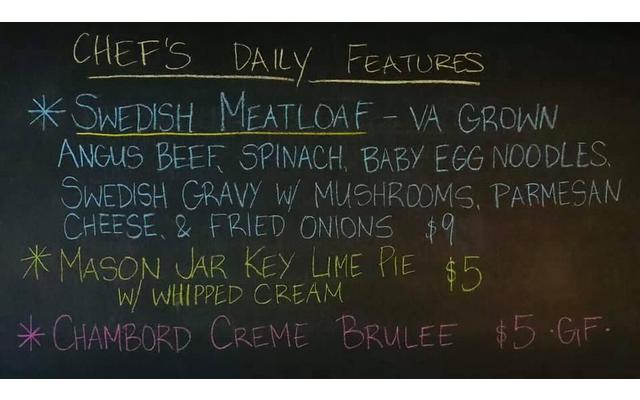 CHEF'S DAILY FEATURES
* SWEDISH MEATLOAF - VA GROWN
ANGUS BEEF, SPINACH, BABY EGG NOODLES,
SWEDISH GRAVY W/ MUSHROOMS, PARMESAN
CHEESE, & FRIED ONIONS $9
* MASON JAR KEY LIME PIE $5
W/ WHIPPED CREAM
* CHAMBORD CREME BRULEE $5 ·GF·